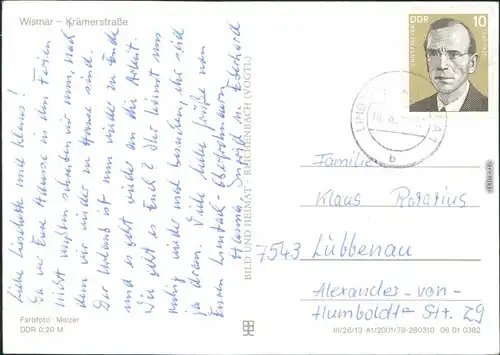 Wismar – Krämerstraße
Liebe Lieselotte und Klaus!
Da wir Eure Adresse in den Ferien
nicht wußten schreiben wir nun, nach
dem wir wieder zu Hause sind.
Der Urlaub ist nun wieder zu Ende
und es geht wieder an die Arbeit.
Wie geht es Euch? Ihr könnt uns
ruhig wieder mal besuchen, ihr seid
ja dran. Viele liebe Grüße von
Euren Limbach-Oberfrohnaern
Hanna,
BILD UND HEIMAT · REICHENBACH (VOGTL)
DDR
10
Familie
Klaus Rotarius
7543 Lübbenau
Alexander-von-
Humboldt-Str. 29
Farbfoto: Melzer
DDR 0,20 M
III/26/13 A1/2001/78-280310 06 01 0382